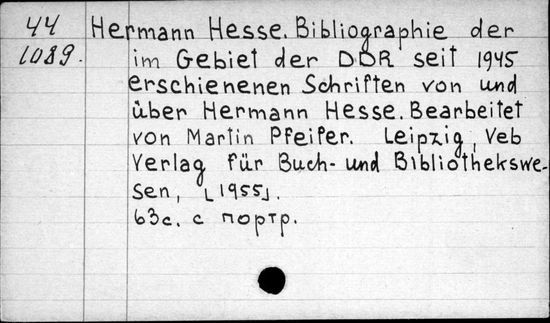 44 Hermann Hesse. Bibliographie der
1089. im Gebiet der DDR seit 1945
erschienenen Schriften von und
über Hermann Hesse. Bearbeitet
von Martin Pfeifer. Leipzig, Veb
Verlag für Buch- und Bibliothekswe-
sen, [1955].
63с. с портр.